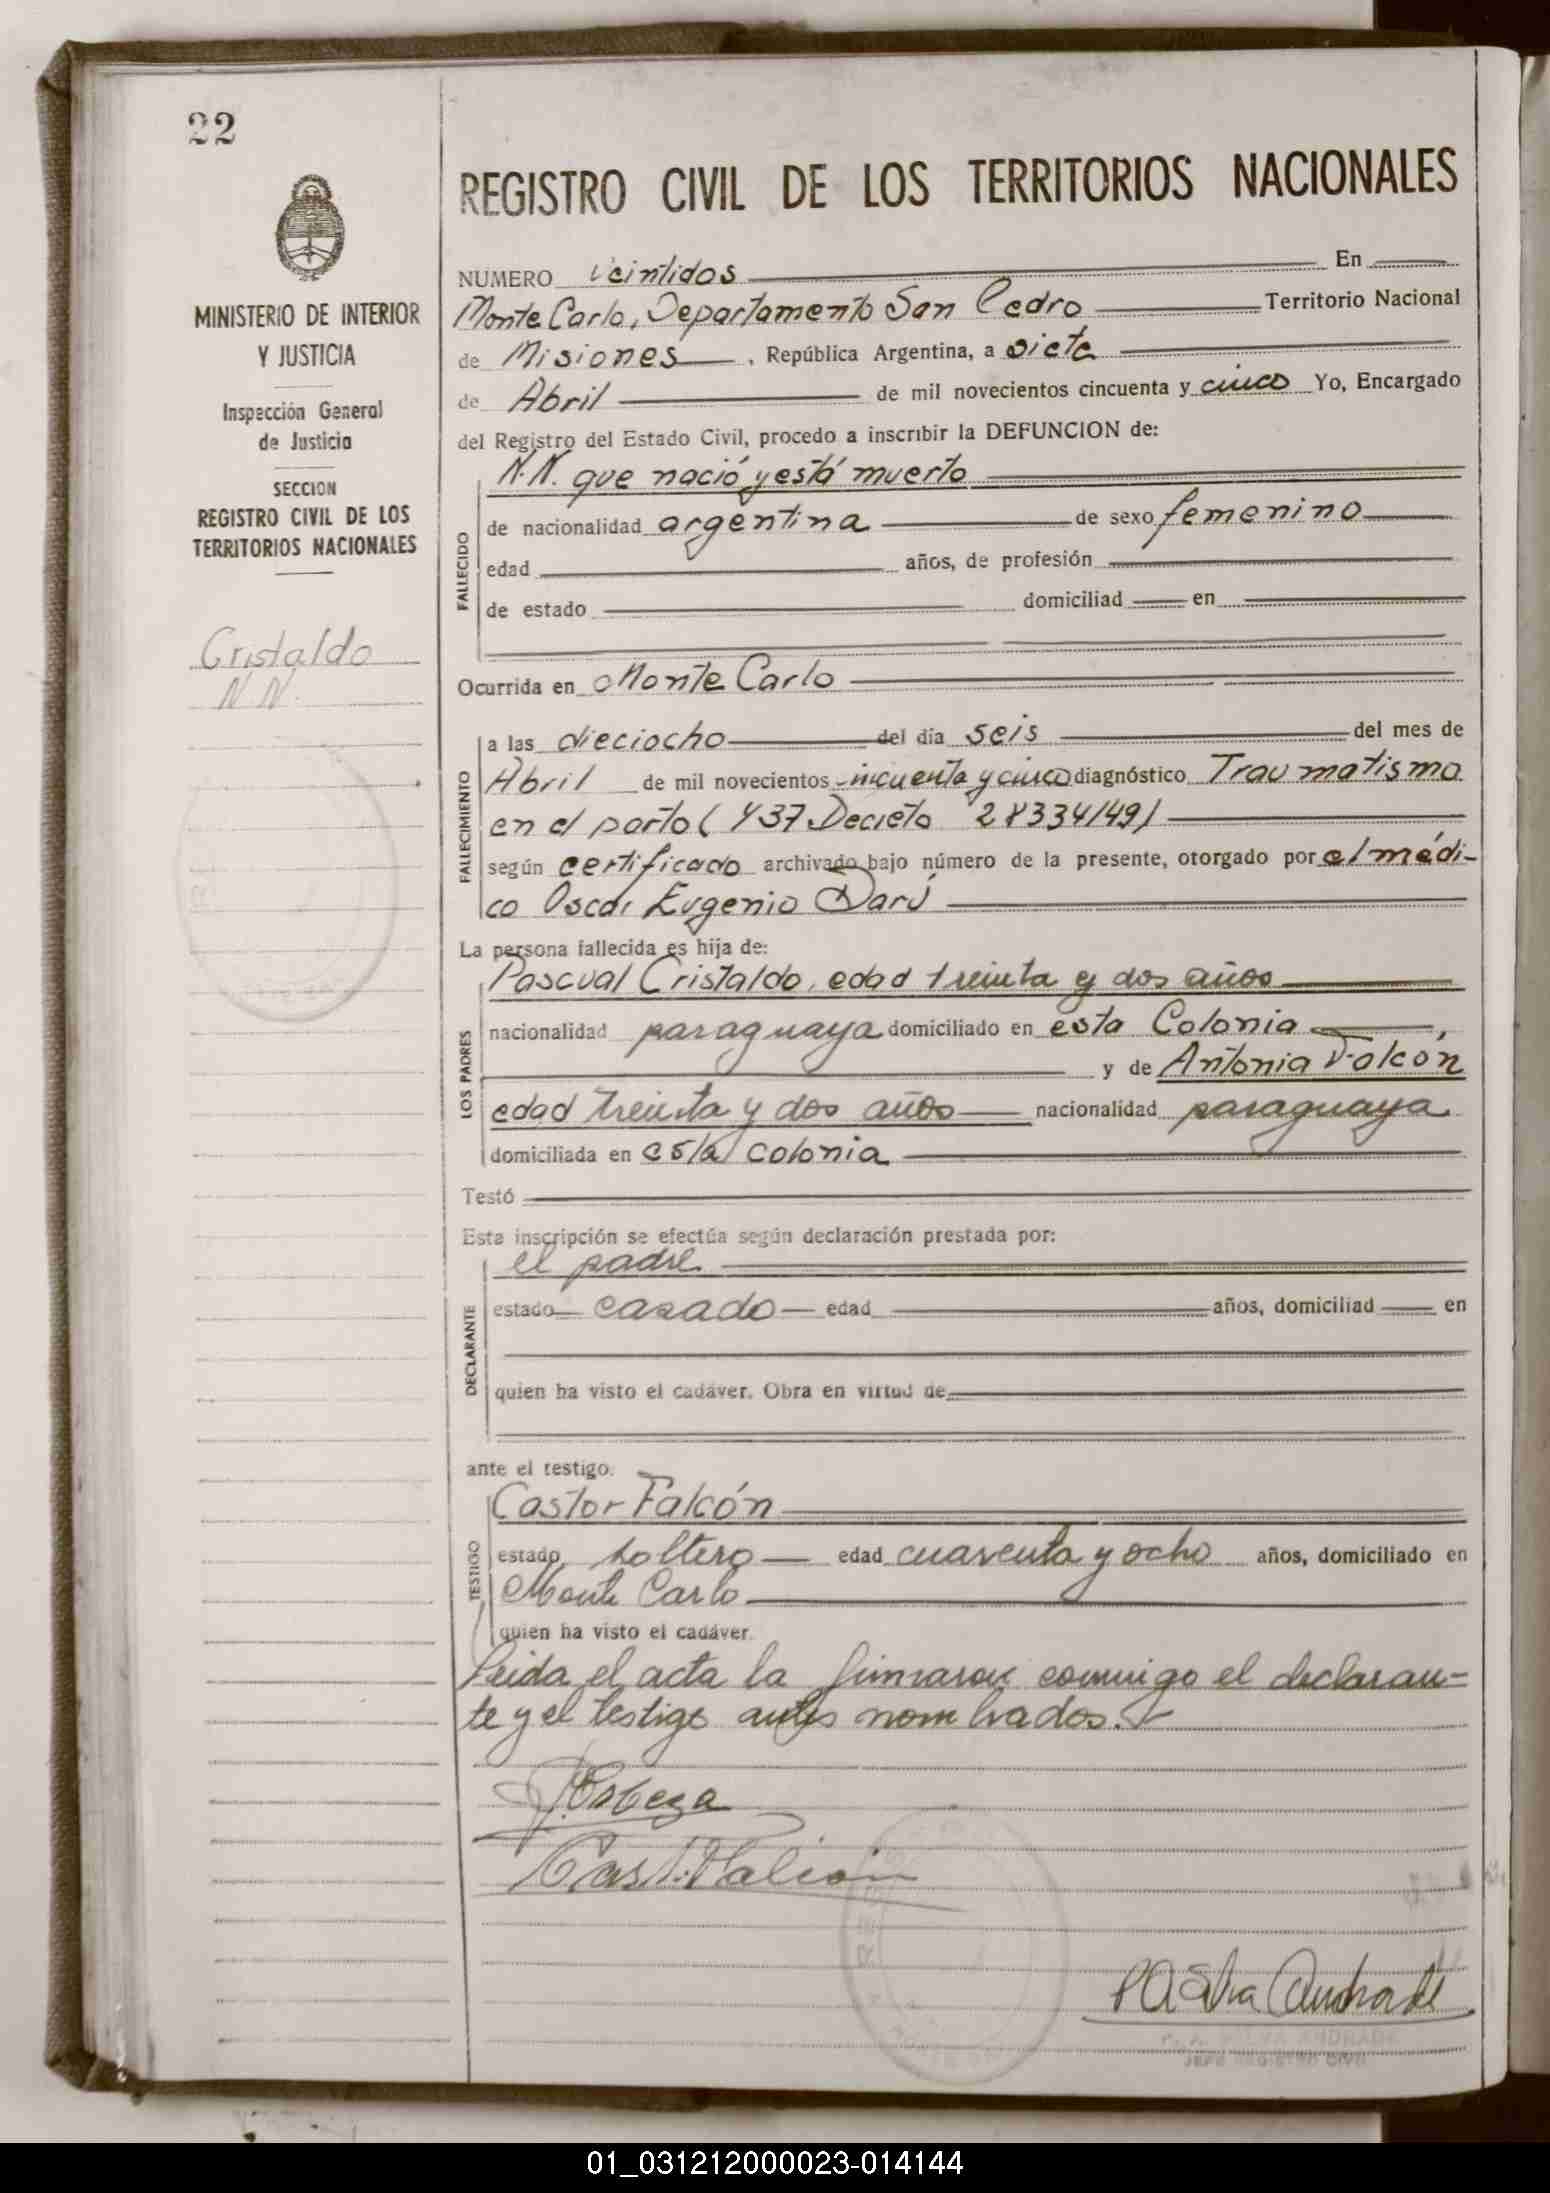 22
MINISTERIO DE INTERIOR
Y JUSTICIA
Inspección General
de Justicia
SECCION
REGISTRO CIVIL DE LOS
TERRITORIOS NACIONALES
Cristaldo
N N.
REGISTRO CIVIL DE LOS TERRITORIOS NACIONALES
NUMERO veintidos En
Monte Carlo, Departamento San Pedro Territorio Nacional
de Misiones, República Argentina, a siete
de Abril de mil novecientos cincuenta y cinco Yo, Encargado
del Registro del Estado Civil, procedo a inscribir la DEFUNCION de:
N.N. que nació y está muerto
FALLECIDO
de nacionalidad argentina de sexo femenino
edad años, de profesión
de estado domiciliad en
Ocurrida en Monte Carlo
FALLECIMIENTO
a las dieciocho del día seis del mes de
Abril de mil novecientos cincuenta y cinco diagnóstico Traumatismo
en el parto ( Y37 Decreto 28334/49)
según certificado archivado bajo número de la presente, otorgado por el médi-
co Oscar Eugenio Darú
La persona fallecida es hija de:
LOS PADRES
Pascual Cristaldo, edad treinta y dos años
nacionalidad paraguaya domiciliado en esta Colonia,
y de Antonia Falcón
edad treinta y dos años nacionalidad paraguaya
domiciliada en esta colonia
Testó
Esta inscripción se efectúa según declaración prestada por:
DECLARANTE
el padre
estado casado edad años, domiciliad en
quien ha visto el cadáver. Obra en virtud de
ante el testigo:
TESTIGO
Castor Falcón
estado soltero edad cuarenta y ocho años, domiciliado en
Monte Carlo
quien ha visto el cadáver.
Leida el acta la firmaron conmigo el declaran=
te y el testigo antes nombrados.
Cast. Falcón
PA Silva Andrade
P. A. SILVA ANDRADE
JEFE REGISTRO CIVIL
01_031212000023-014144